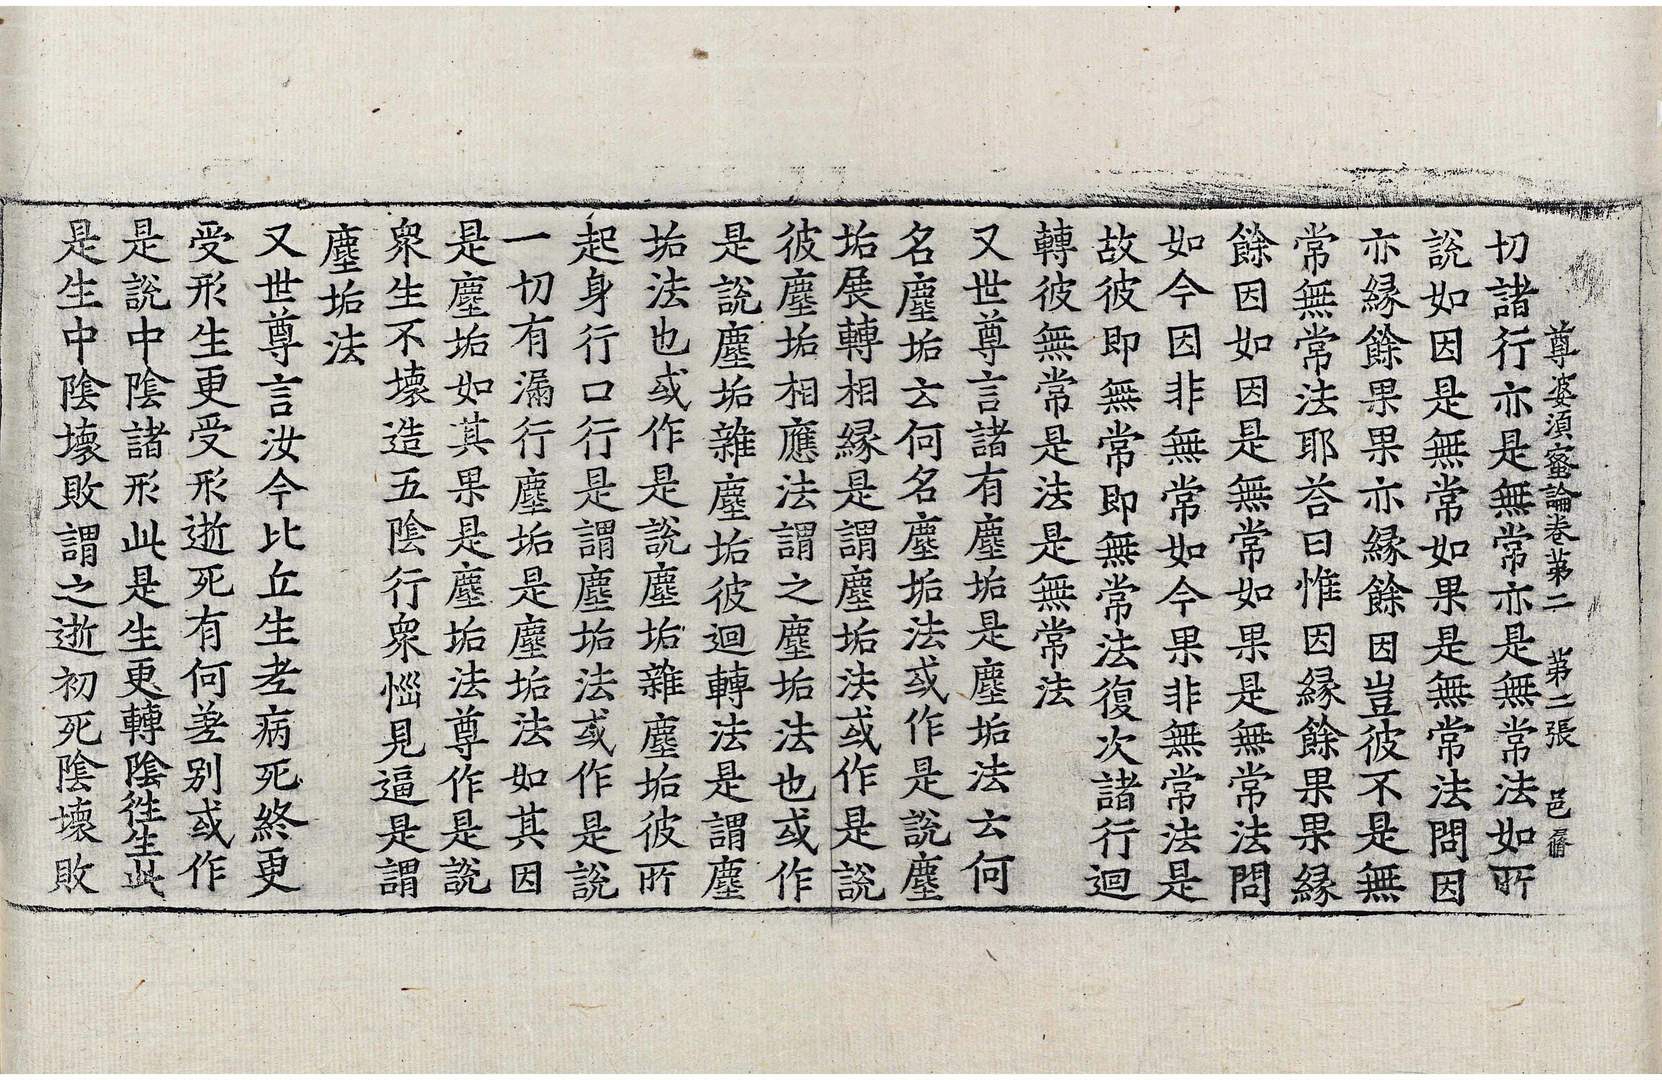 尊婆須蜜論卷苐二　苐二張　邑
切諸行亦是無常亦是無常法如所
說如因是無常如果是無常法問因
亦緣餘果果亦緣餘因豈彼不是無
常無常法耶荅曰惟因緣餘果果緣
餘因如因是無常如果是無常法問
如今因非無常如今果非無常法是
故彼即無常即無常法復次諸行迴
轉彼無常是法是無常法
又世尊言諸有塵垢是塵垢法云何
名塵垢云何名塵垢法或作是說塵
垢展轉相緣是謂塵垢法或作是說
彼塵垢相應法謂之塵垢法也或作
是說塵垢雜塵垢彼迴轉法是謂塵
垢法也或作是說塵垢雜塵垢彼所
起身行口行是謂塵垢法或作是說
一切有漏行塵垢是塵垢法如其因
是塵垢如其果是塵垢法尊作是說
衆生不壞造五陰行衆惱見逼是謂
塵垢法
又世尊言汝今比丘生老病死終更
受形生更受形逝死有何差别或作
是說中陰諸形此是生更轉陰徃生此
是生中陰壞敗謂之逝初死陰壞敗